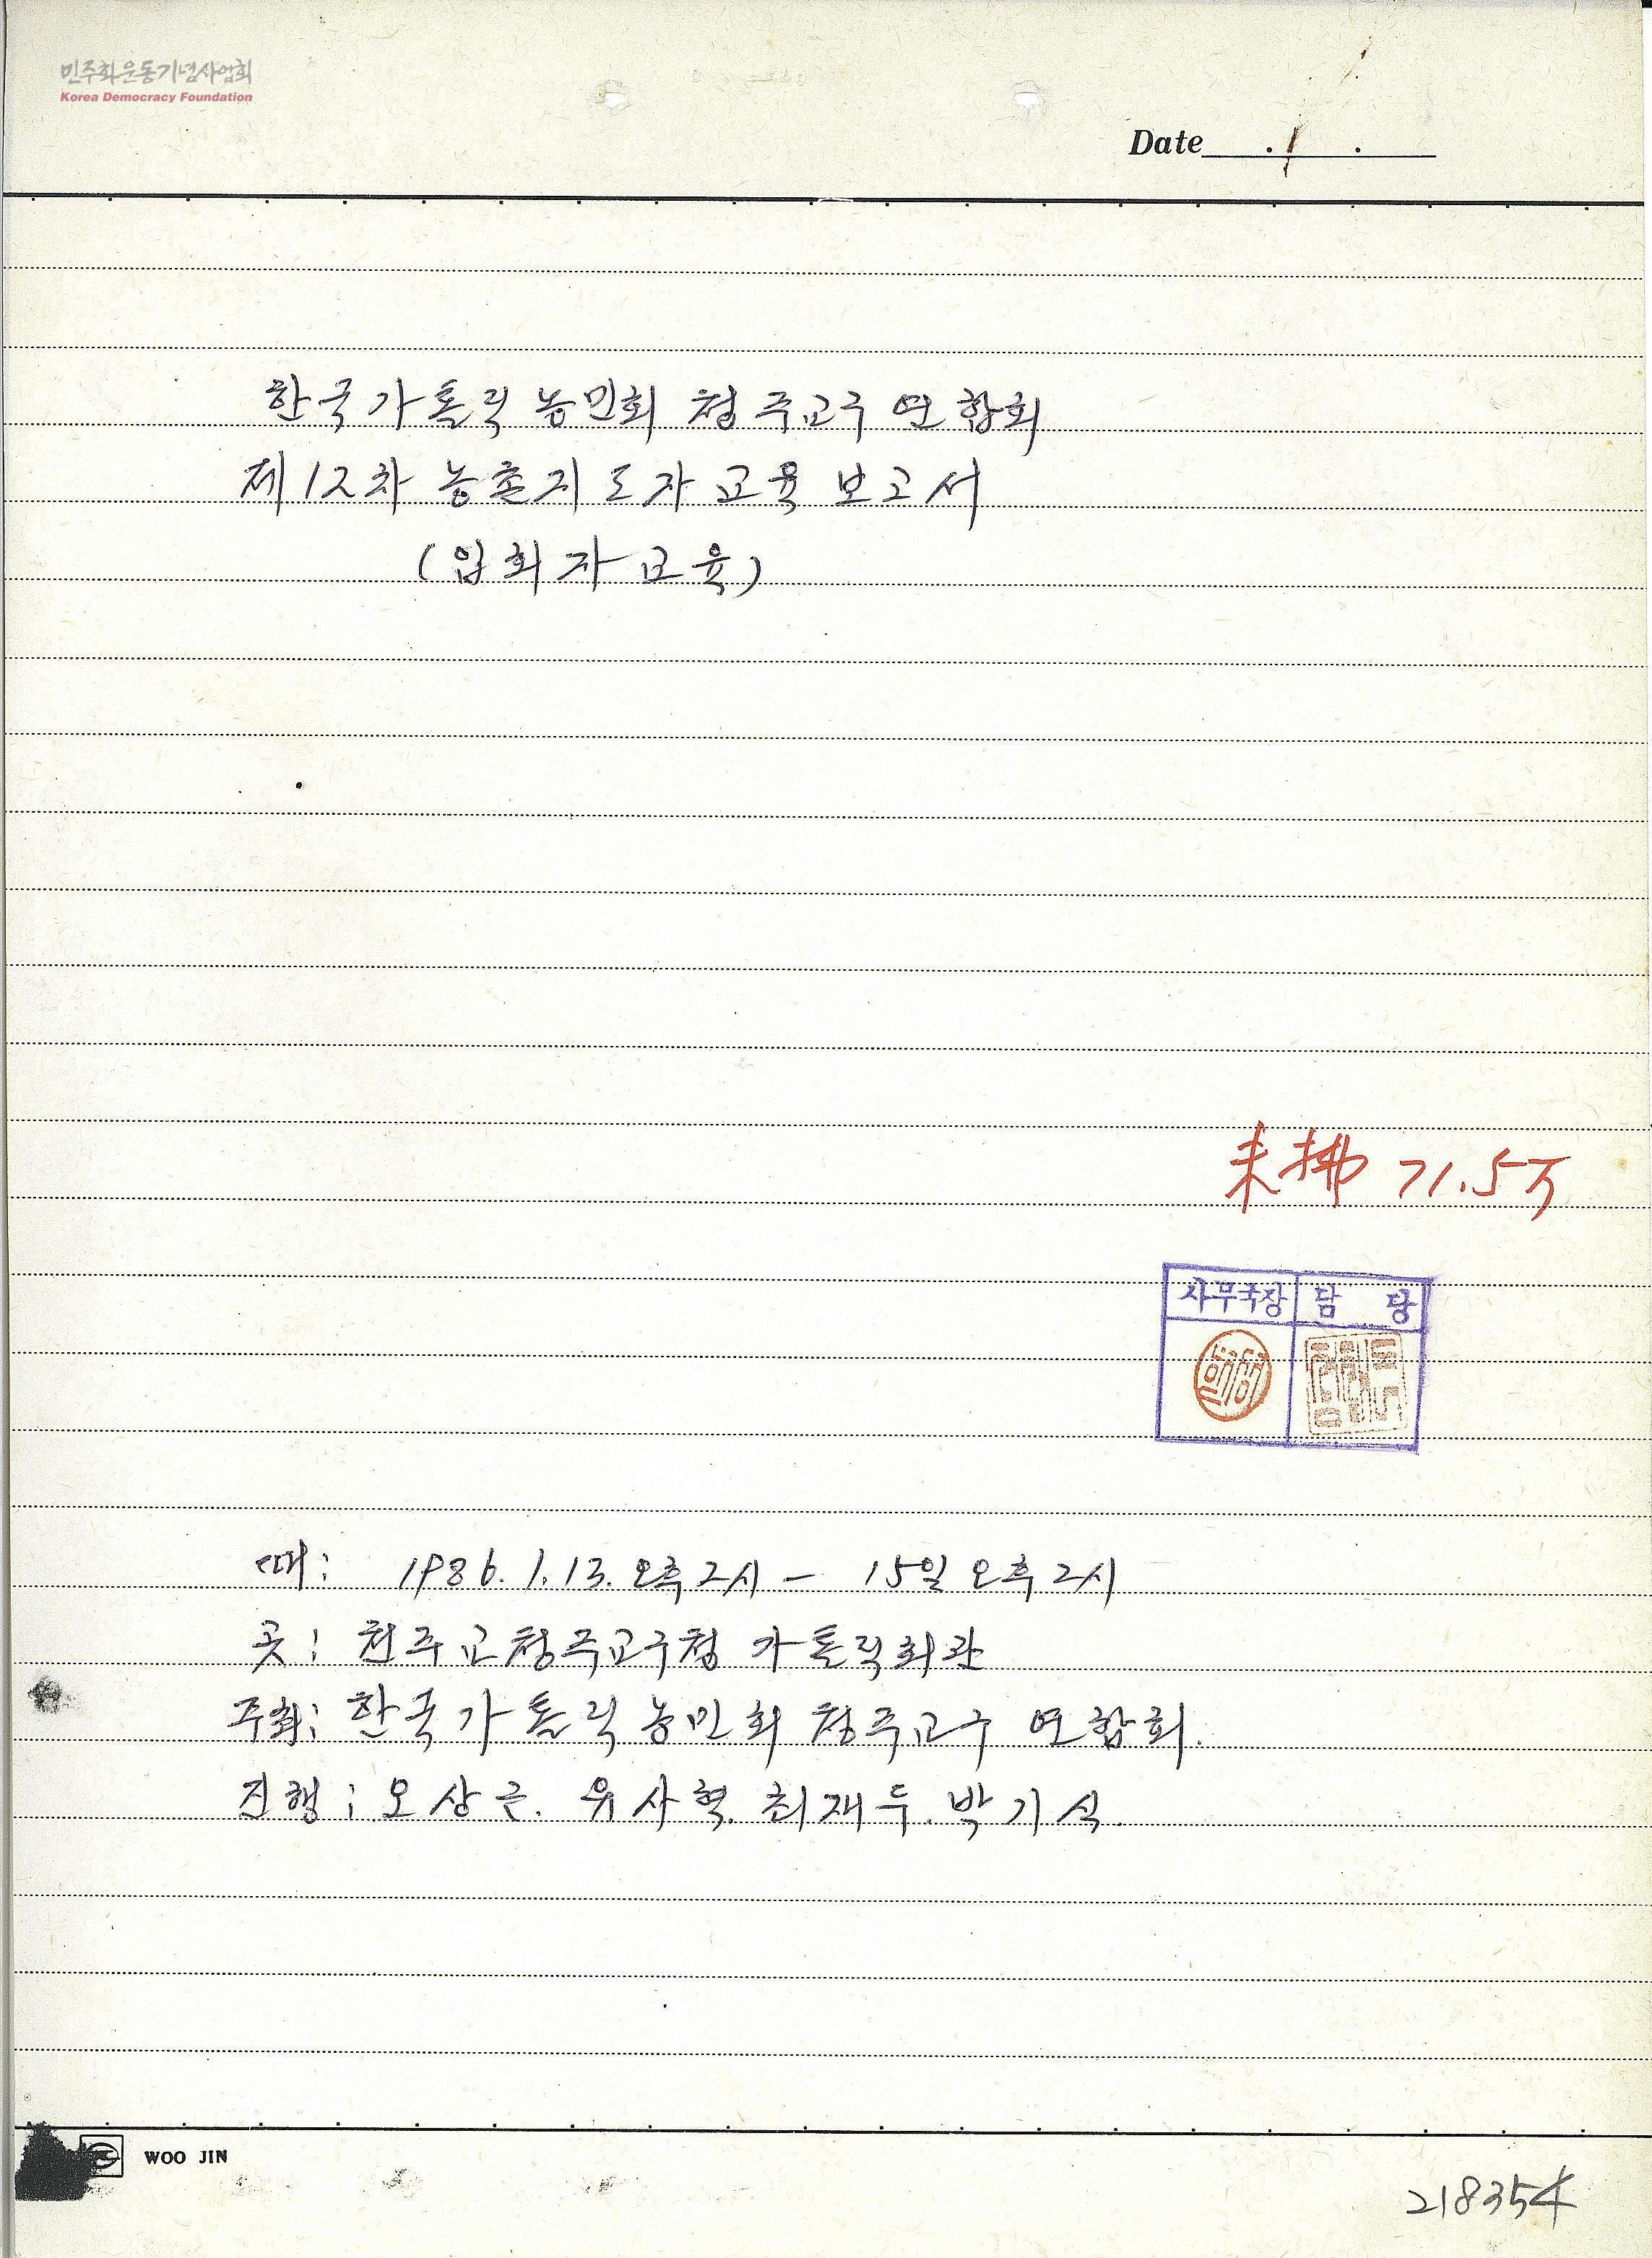 민주화운동기념사업회
Korea Democracy Foundation
Date . .
한국가톨릭 농민회 청주교구 연합회
제12차 농촌지도자교육 보고서
(입회자교육)
未拂 71.5万
사무국장 담 당
때: 1986. 1. 13. 오후 2시 - 15일 오후 2시
곳: 천주교청주교구청 가톨릭회관
주최: 한국가톨릭농민회 청주교구 연합회.
진행: 오상근. 유사혁. 최재두. 박기식.
WOO JIN
218354